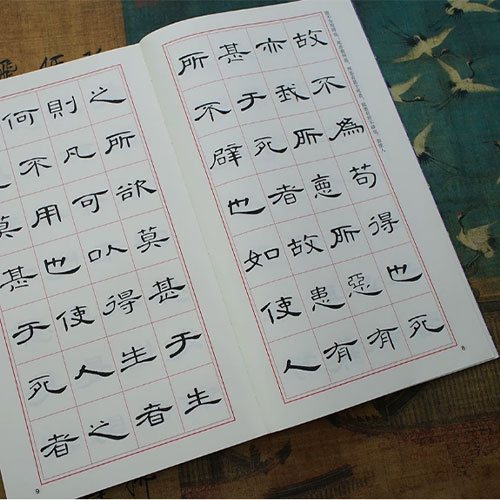 故不為苟得也死
亦我所惡所惡有
甚于死者故患有
所不辟也如使人
8
之所欲莫甚于生
則凡可以得生者
何不用也使人之
莫甚于死者
9